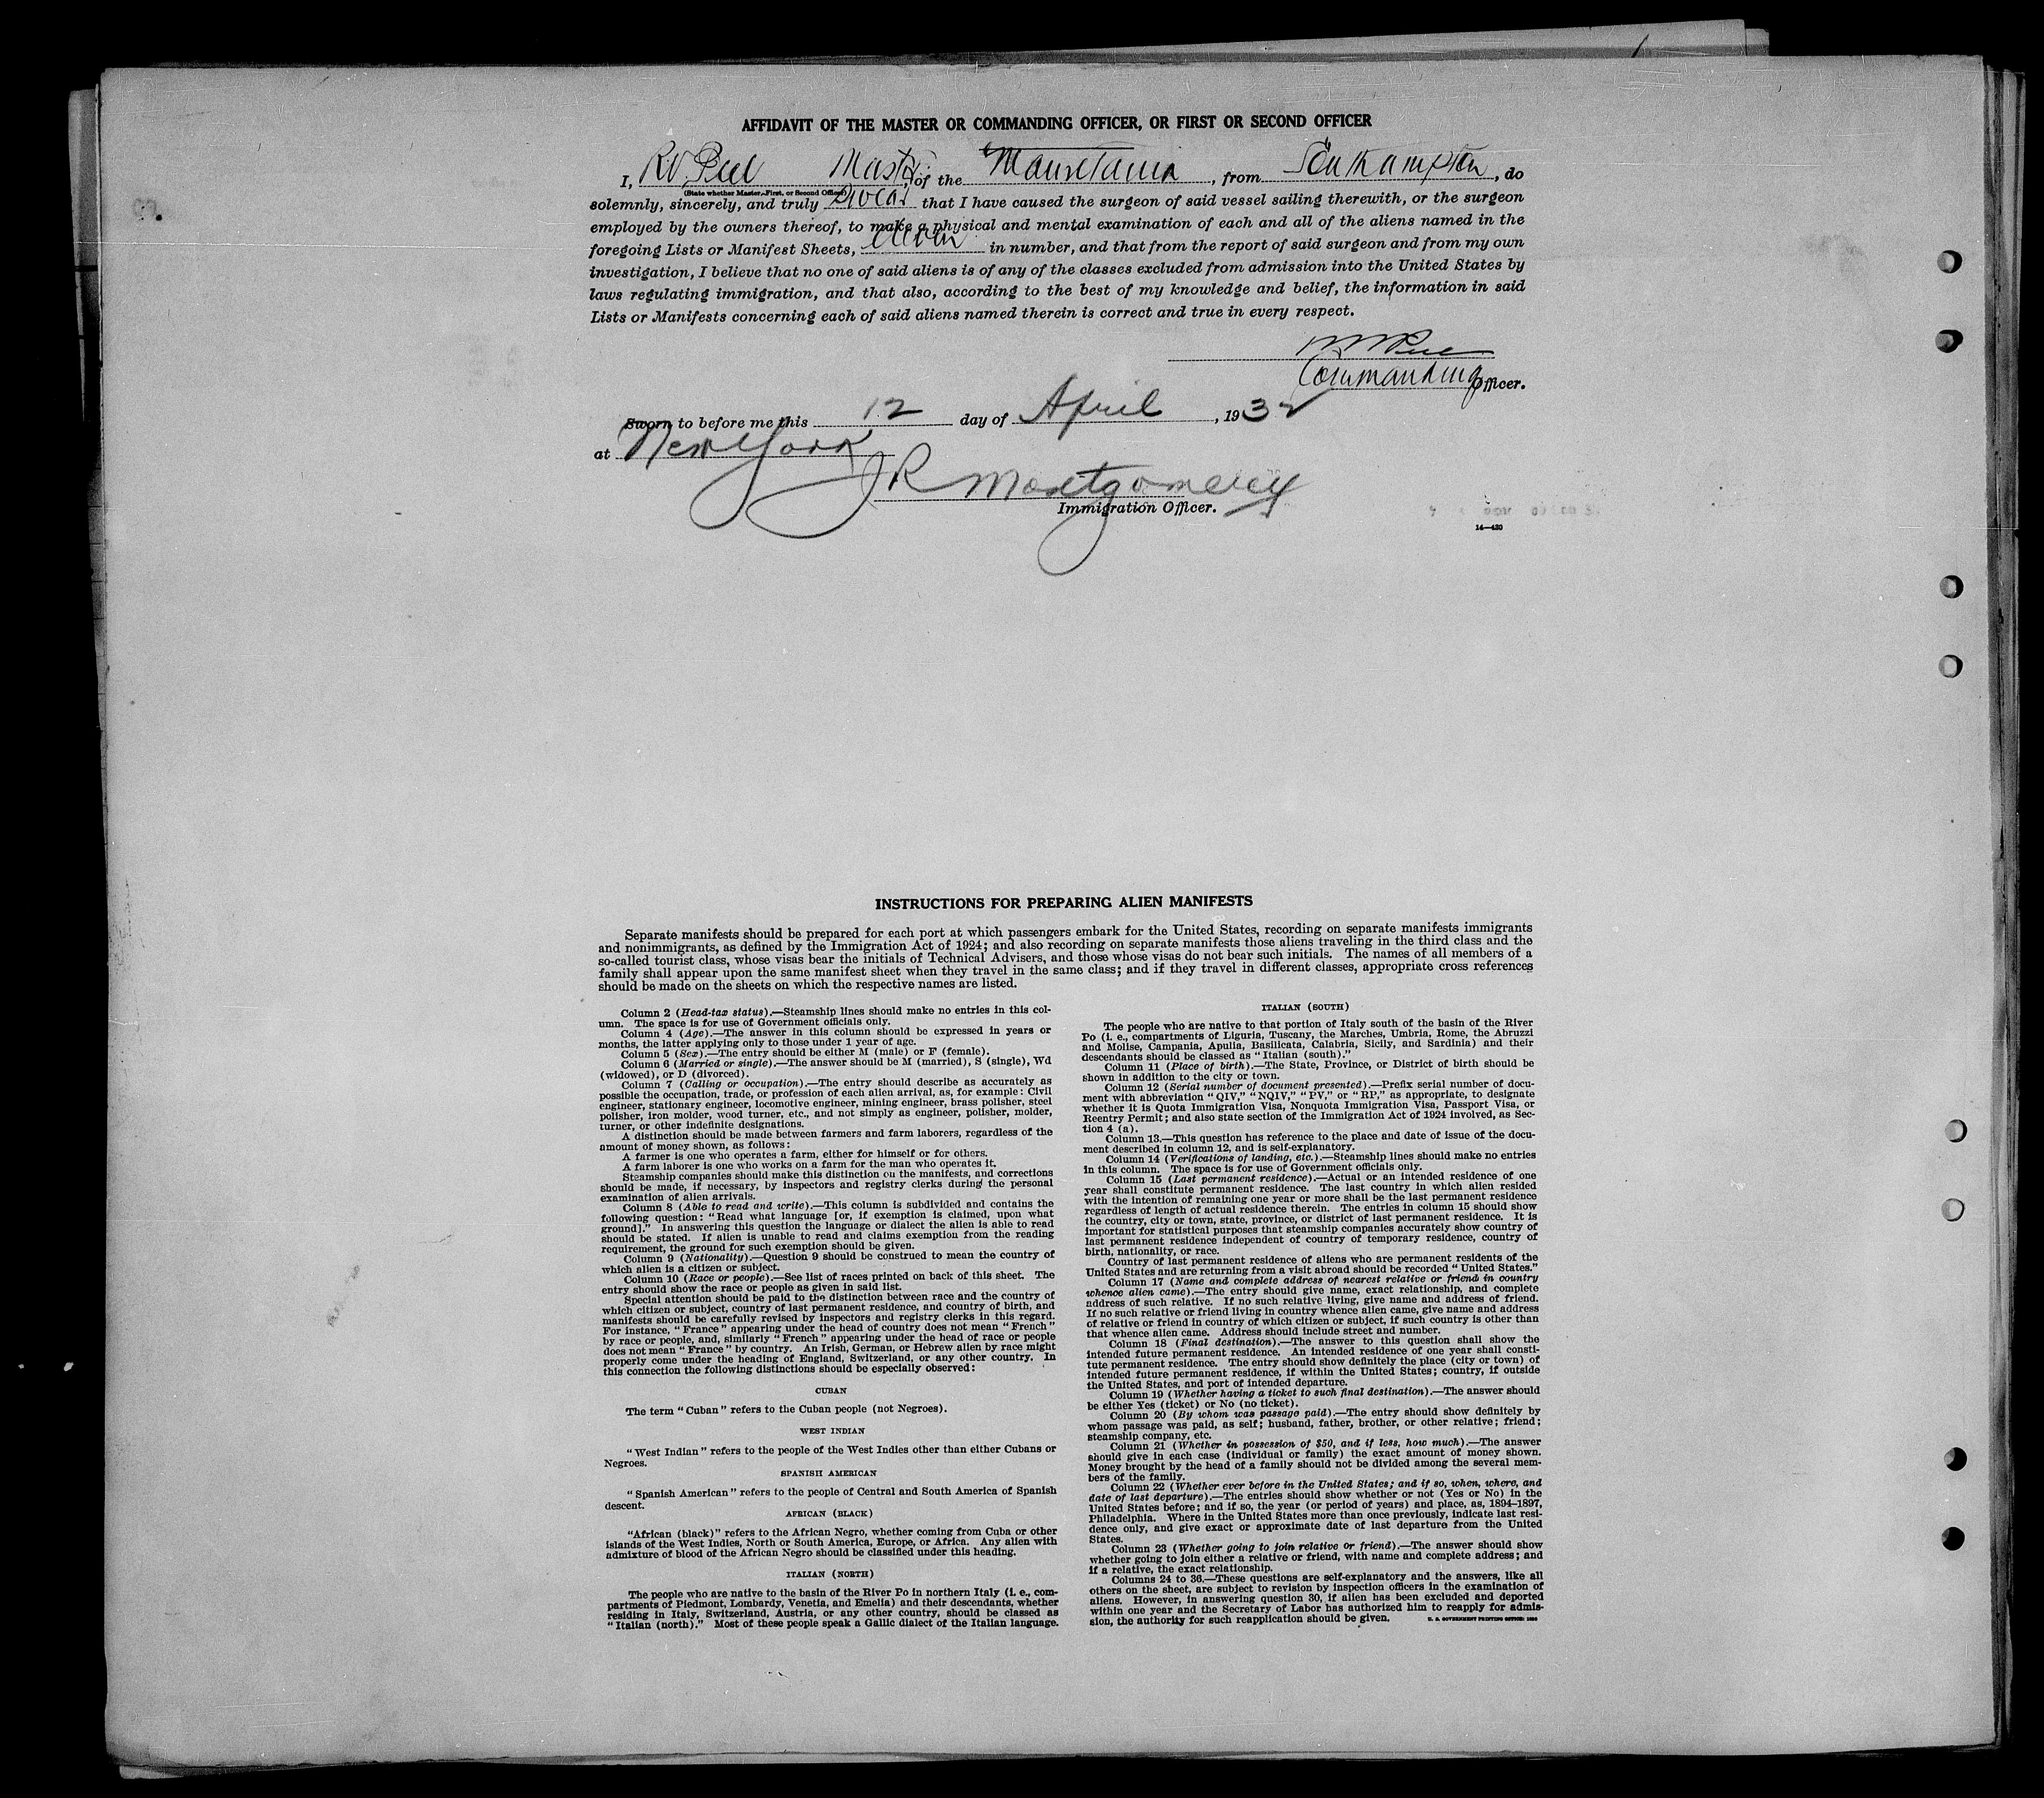 AFFIDAVIT OF THE MASTER OR COMMANDING OFFICER, OR FIRST OR SECOND OFFICER
I, R.V. Peel Master, of the Mauretania, from Southampton, do
(State whether Master, First, or Second Officer)
solemnly, sincerely, and truly swear that I have caused the surgeon of said vessel sailing therewith, or the surgeon
employed by the owners thereof, to make a physical and mental examination of each and all of the aliens named in the
foregoing Lists or Manifest Sheets, eleven in number, and that from the report of said surgeon and from my own
investigation, I believe that no one of said aliens is of any of the classes excluded from admission into the United States by
laws regulating immigration, and that also, according to the best of my knowledge and belief, the information in said
Lists or Manifests concerning each of said aliens named therein is correct and true in every respect.
Commanding Officer.
Sworn to before me this 12 day of April, 1932
at New York
J R Montgomery
Immigration Officer.
14—430
INSTRUCTIONS FOR PREPARING ALIEN MANIFESTS
Separate manifests should be prepared for each port at which passengers embark for the United States, recording on separate manifests immigrants
and nonimmigrants, as defined by the Immigration Act of 1924; and also recording on separate manifests those aliens traveling in the third class and the
so-called tourist class, whose visas bear the initials of Technical Advisers, and those whose visas do not bear such initials. The names of all members of a
family shall appear upon the same manifest sheet when they travel in the same class; and if they travel in different classes, appropriate cross references
should be made on the sheets on which the respective names are listed.
Column 2 (Head-tax status).—Steamship lines should make no entries in this col-
umn. The space is for use of Government officials only.
Column 4 (Age).—The answer in this column should be expressed in years or
months, the latter applying only to those under 1 year of age.
Column 5 (Sex).—The entry should be either M (male) or F (female).
Column 6 (Married or single).—The answer should be M (married), S (single), Wd
(widowed), or D (divorced).
Column 7 (Calling or occupation).—The entry should describe as accurately as
possible the occupation, trade, or profession of each alien arrival, as, for example: Civil
engineer, stationary engineer, locomotive engineer, mining engineer, brass polisher, steel
polisher, iron molder, wood turner, etc., and not simply as engineer, polisher, molder,
turner, or other indefinite designations.
A distinction should be made between farmers and farm laborers, regardless of the
amount of money shown, as follows:
A farmer is one who operates a farm, either for himself or for others.
A farm laborer is one who works on a farm for the man who operates it.
Steamship companies should make this distinction on the manifests, and corrections
should be made, if necessary, by inspectors and registry clerks during the personal
examination of alien arrivals.
Column 8 (Able to read and write).—This column is subdivided and contains the
following question: "Read what language [or, if exemption is claimed, upon what
ground]." In answering this question the language or dialect the alien is able to read
should be stated. If alien is unable to read and claims exemption from the reading
requirement, the ground for such exemption should be given.
Column 9 (Nationality).—Question 9 should be construed to mean the country of
which alien is a citizen or subject.
Column 10 (Race or people).—See list of races printed on back of this sheet. The
entry should show the race or people as given in said list.
Special attention should be paid to the distinction between race and the country of
which citizen or subject, country of last permanent residence, and country of birth, and
manifests should be carefully revised by inspectors and registry clerks in this regard.
For instance, "France" appearing under the head of country does not mean "French"
by race or people, and, similarly "French" appearing under the head of race or people
does not mean "France" by country. An Irish, German, or Hebrew alien by race might
properly come under the heading of England, Switzerland, or any other country. In
this connection the following distinctions should be especially observed:
CUBAN
The term "Cuban" refers to the Cuban people (not Negroes).
WEST INDIAN
"West Indian" refers to the people of the West Indies other than either Cubans or
Negroes.
SPANISH AMERICAN
"Spanish American" refers to the people of Central and South America of Spanish
descent.
AFRICAN (BLACK)
"African (black)" refers to the African Negro, whether coming from Cuba or other
islands of the West Indies, North or South America, Europe, or Africa. Any alien with
admixture of blood of the African Negro should be classified under this heading.
ITALIAN (NORTH)
The people who are native to the basin of the River Po in northern Italy (i. e., com-
partments of Piedmont, Lombardy, Venetia, and Emelia) and their descendants, whether
residing in Italy, Switzerland, Austria, or any other country, should be classed as
"Italian (north)." Most of these people speak a Gallic dialect of the Italian language.
ITALIAN (SOUTH)
The people who are native to that portion of Italy south of the basin of the River
Po (i. e., compartments of Liguria, Tuscany, the Marches, Umbria, Rome, the Abruzzi
and Molise, Campania, Apulia, Basilicata, Calabria, Sicily, and Sardinia) and their
descendants should be classed as "Italian (south)."
Column 11 (Place of birth).—The State, Province, or District of birth should be
shown in addition to the city or town.
Column 12 (Serial number of document presented).—Prefix serial number of docu-
ment with abbreviation "QIV," "NQIV," "PV," or "RP," as appropriate, to designate
whether it is Quota Immigration Visa, Nonquota Immigration Visa, Passport Visa, or
Reentry Permit; and also state section of the Immigration Act of 1924 involved, as Sec-
tion 4 (a).
Column 13.—This question has reference to the place and date of issue of the docu-
ment described in column 12, and is self-explanatory.
Column 14 (Verifications of landing, etc.).—Steamship lines should make no entries
in this column. The space is for use of Government officials only.
Column 15 (Last permanent residence).—Actual or an intended residence of one
year shall constitute permanent residence. The last country in which alien resided
with the intention of remaining one year or more shall be the last permanent residence
regardless of length of actual residence therein. The entries in column 15 should show
the country, city or town, state, province, or district of last permanent residence. It is
important for statistical purposes that steamship companies accurately show country of
last permanent residence independent of country of temporary residence, country of
birth, nationality, or race.
Country of last permanent residence of aliens who are permanent residents of the
United States and are returning from a visit abroad should be recorded "United States."
Column 17 (Name and complete address of nearest relative or friend in country
whence alien came).—The entry should give name, exact relationship, and complete
address of such relative. If no such relative living, give name and address of friend.
If no such relative or friend living in country whence alien came, give name and address
of relative or friend in country of which citizen or subject, if such country is other than
that whence alien came. Address should include street and number.
Column 18 (Final destination).—The answer to this question shall show the
intended future permanent residence. An intended residence of one year shall consti-
tute permanent residence. The entry should show definitely the place (city or town) of
intended future permanent residence, if within the United States; country, if outside
the United States, and port of intended departure.
Column 19 (Whether having a ticket to such final destination).—The answer should
be either Yes (ticket) or No (no ticket).
Column 20 (By whom was passage paid).—The entry should show definitely by
whom passage was paid, as self; husband, father, brother, or other relative; friend;
steamship company, etc.
Column 21 (Whether in possession of $50, and if less, how much).—The answer
should give in each case (individual or family) the exact amount of money shown.
Money brought by the head of a family should not be divided among the several mem-
bers of the family.
Column 22 (Whether ever before in the United States; and if so, when, where, and
date of last departure).—The entries should show whether or not (Yes or No) in the
United States before; and if so, the year (or period of years) and place, as, 1894–1897,
Philadelphia. Where in the United States more than once previously, indicate last resi-
dence only, and give exact or approximate date of last departure from the United
States.
Column 23 (Whether going to join relative or friend).—The answer should show
whether going to join either a relative or friend, with name and complete address; and
if a relative, the exact relationship.
Columns 24 to 36.—These questions are self-explanatory and the answers, like all
others on the sheet, are subject to revision by inspection officers in the examination of
aliens. However, in answering question 30, if alien has been excluded and deported
within one year and the Secretary of Labor has authorized him to reapply for admis-
sion, the authority for such reapplication should be given.
U. S. GOVERNMENT PRINTING OFFICE